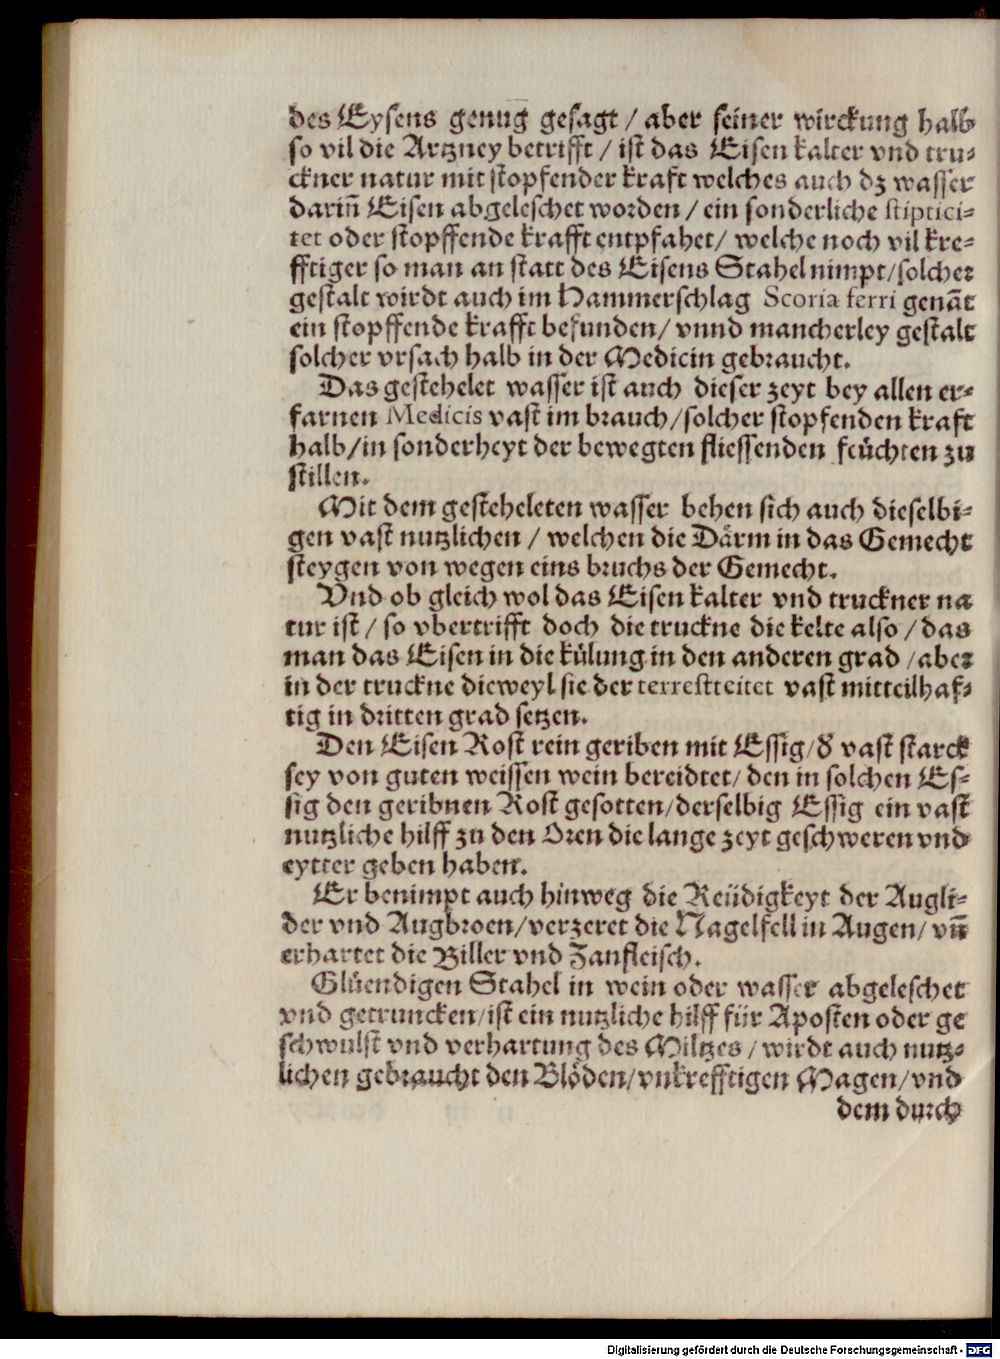 des Eysens genug gesagt / aber seiner wirckung halb
so vil die Artzney betrifft / ist das Eisen kalter vnd tru⸗
ckner natur mit stopfender kraft welches auch dz wasser
dariñ Eisen abgeleschet worden / ein sonderliche stiptici⸗
tet oder stopffende krafft entpfahet / welche noch vil kre⸗
fftiger so man an statt des Eisens Stahel nimpt / solcher
gestalt wirdt auch im Hammerschlag Scoria ferri genãt
ein stopffende krafft befunden / vnnd mancherley gestalt
solcher vrsach halb in der Medicin gebraucht.
Das gestehelet wasser ist auch dieser zeyt bey allen er⸗
farnen Medicis vast im brauch / solcher stopfenden kraft
halb / in sonderheyt der bewegten fliessenden feüchten zu
stillen.
Mit dem gesteheleten wasser behen sich auch dieselbi⸗
gen vast nutzlichen / welchen die Därm in das Gemecht
steygen von wegen eins bruchs der Gemecht.
Vnd ob gleich wol das Eisen kalter vnd truckner na
tur ist / so vbertrifft doch die truckne die kelte also / das
man das Eisen in die külung in den anderen grad / aber
in der truckne dieweyl sie der terrestteitet vast mitteilhaf⸗
tig in dritten grad setzen.
Den Eisen Rost rein geriben mit Essig / d̕ vast starck
sey von guten weissen wein bereidtet / den in solchen Es⸗
sig den geribnen Rost gesotten / derselbig Essig ein vast
nutzliche hilff zu den Oren die lange zeyt geschweren vnd
eytter geben haben.
Er benimpt auch hinweg die Reüdigkeyt der Augli⸗
der vnd Augbroen / verzeret die Nagelfell in Augen / vñ
erhartet die Biller vnd Zanfleisch.
Glüendigen Stahel in wein oder wasser abgeleschet
vnd getruncken / ist ein nutzliche hilff für Aposten oder ge
schwulst vnd verhartung des Miltzes / wirdt auch nutz⸗
lichen gebraucht den Blöden / vnkrefftigen Magen / vnd
dem durch
Digitalisierung gefördert durch die Deutsche Forschungsgemeinschaft - DFG